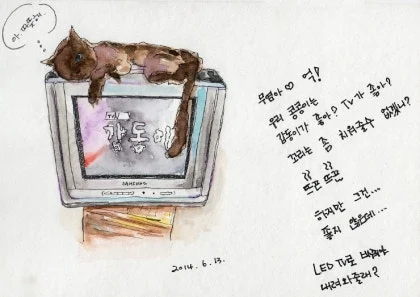 아, 따뜻해..
갑동이
2014. 6. 13.
억!
우리 콩콩이는
갑동이가 좋아? TV가 좋아?
꼬리는 좀 치워줄수 없겠니?
뜨끈 뜨끈
하지만 그건...
좋지 않은데...
LED TV로 바꿔야
내려와줄래?